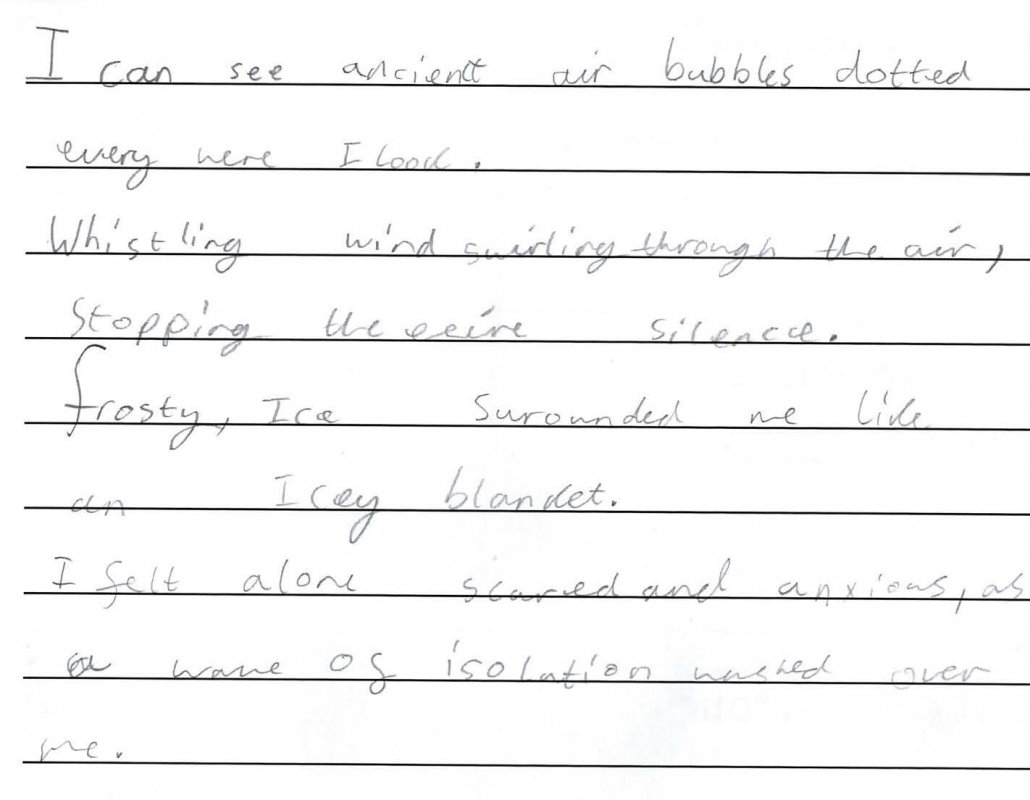 I can see ancient air bubbles dotted
every were I look.
Whistling wind swirling through the air,
Stopping the eeire silence.
frosty, Ice Surounded me like
an Icey blanket.
I felt alone scared and anxious, as
a wave of isolation washed over
me.